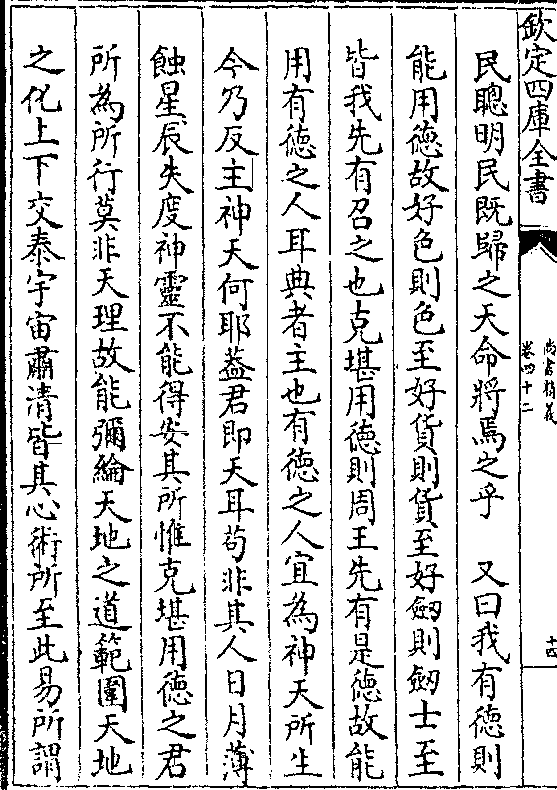 欽定四庫全書
尚書精義
卷四十二
十四
民聰明民既歸之天命將焉之乎　又曰我有德則
能用德故好色則色至好貨則貨至好劒則劒士至
皆我先有召之也克堪用德則周王先有是德故能
用有德之人耳典者主也有德之人宜為神天所主
今乃反主神天何耶葢君即天耳茍非其人日月薄
蝕星辰失度神靈不能得安其所惟克堪用德之君
所為所行莫非天理故能彌綸天地之道範圍天地
之化上下交泰宇宙肅清皆其心術所至此易所謂